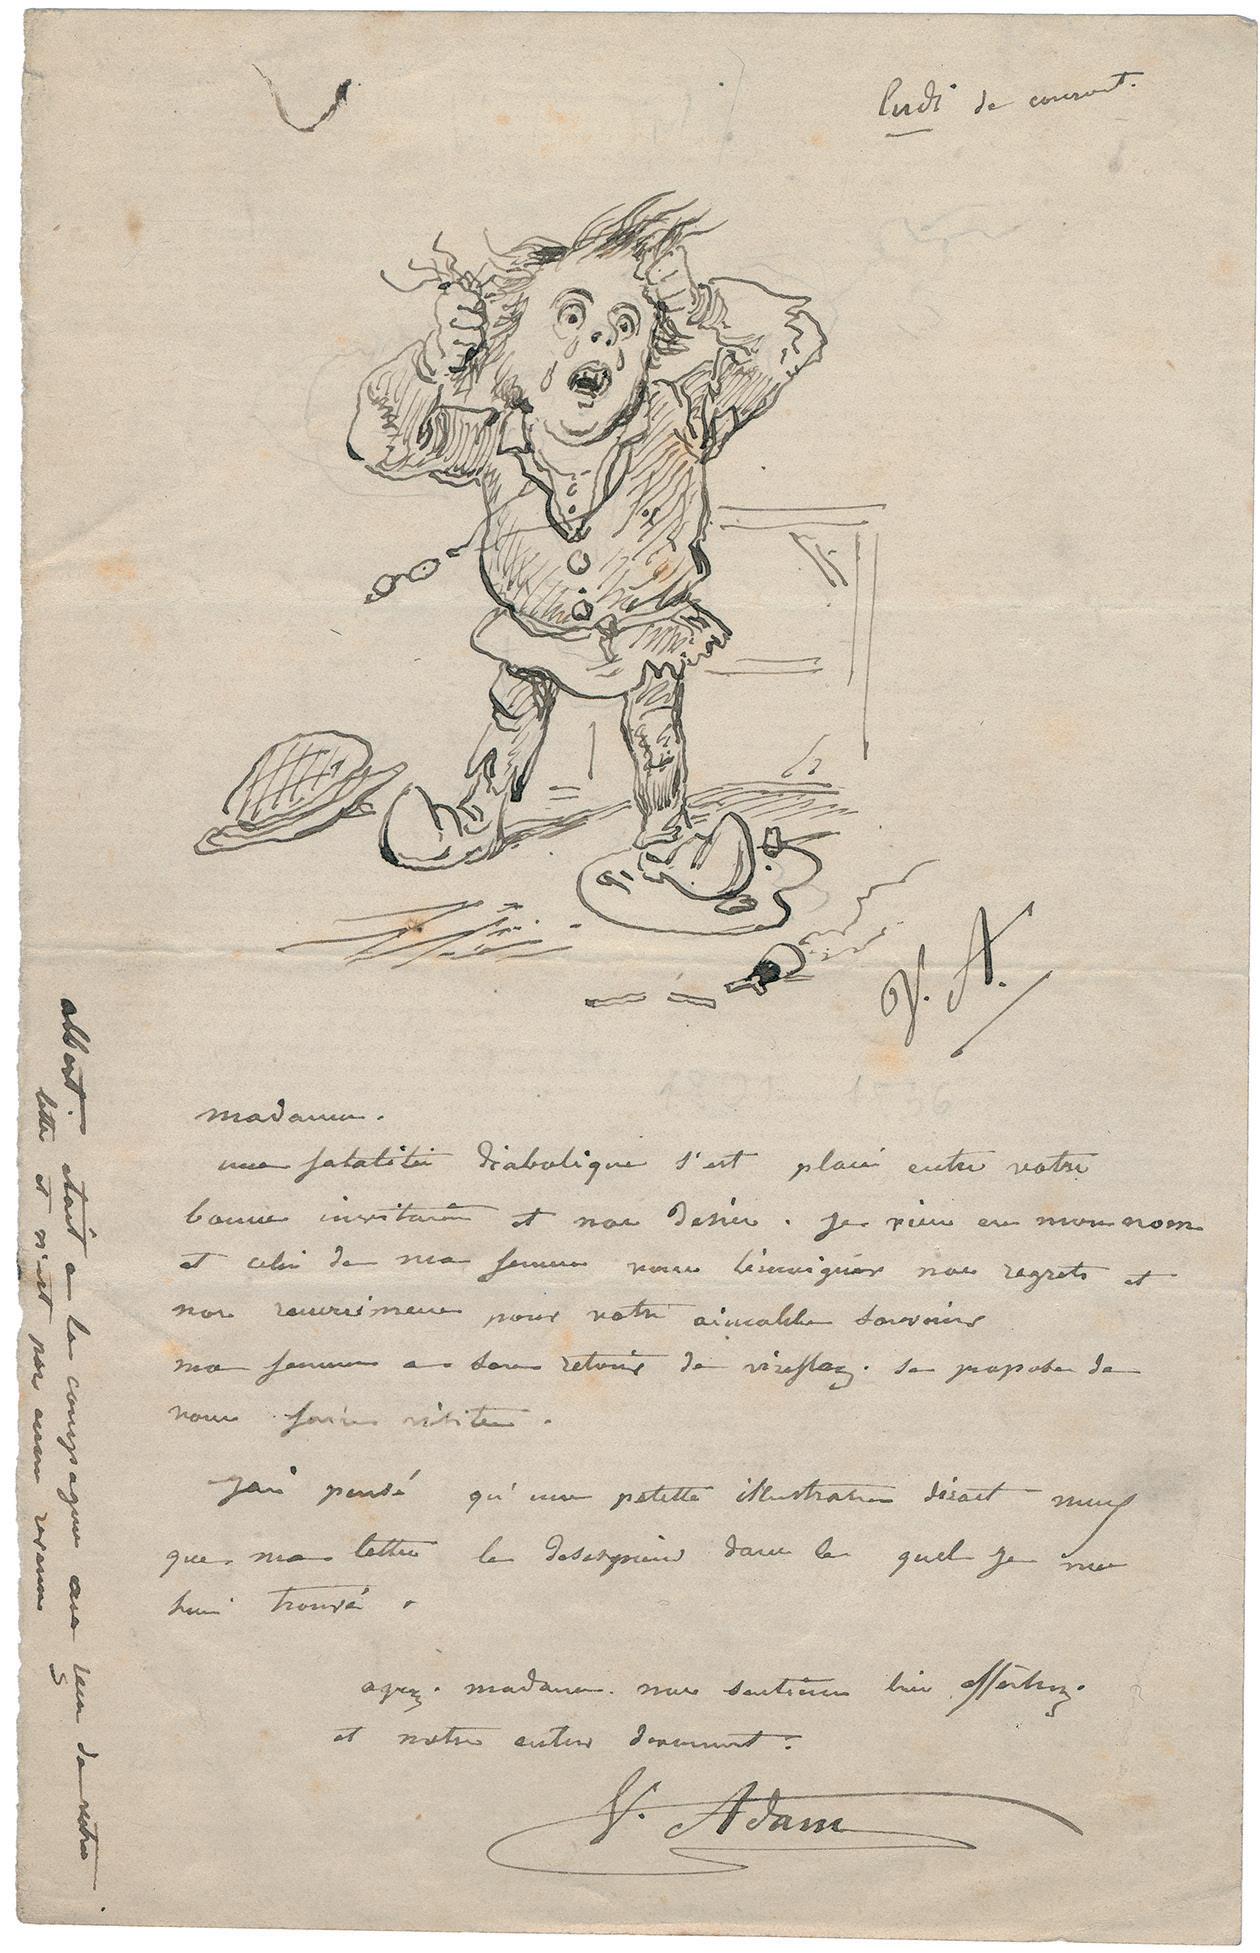 lundi de courant.
V. A.
madame.
une fatalité diabolique s'est placé entre votre
bonne invitation et nos désirs. je viens en mon nom
et celui de ma femme vous témoigner nos regrets et
nos pour votre aimable souvenir
ma femme a son retour de viroflay. se propose de
vous faire visite.
J'ai pensé qu'une petite illustration disait mieux
que. ma lettre le desespoir dans le quel je me
suis trouvé.
agréez. madame. nos sentimens bien affectueux.
et notre entier devoument.
V. Adam
albert était a la campagne lors de votre
lettre et n'est pas encore revenu